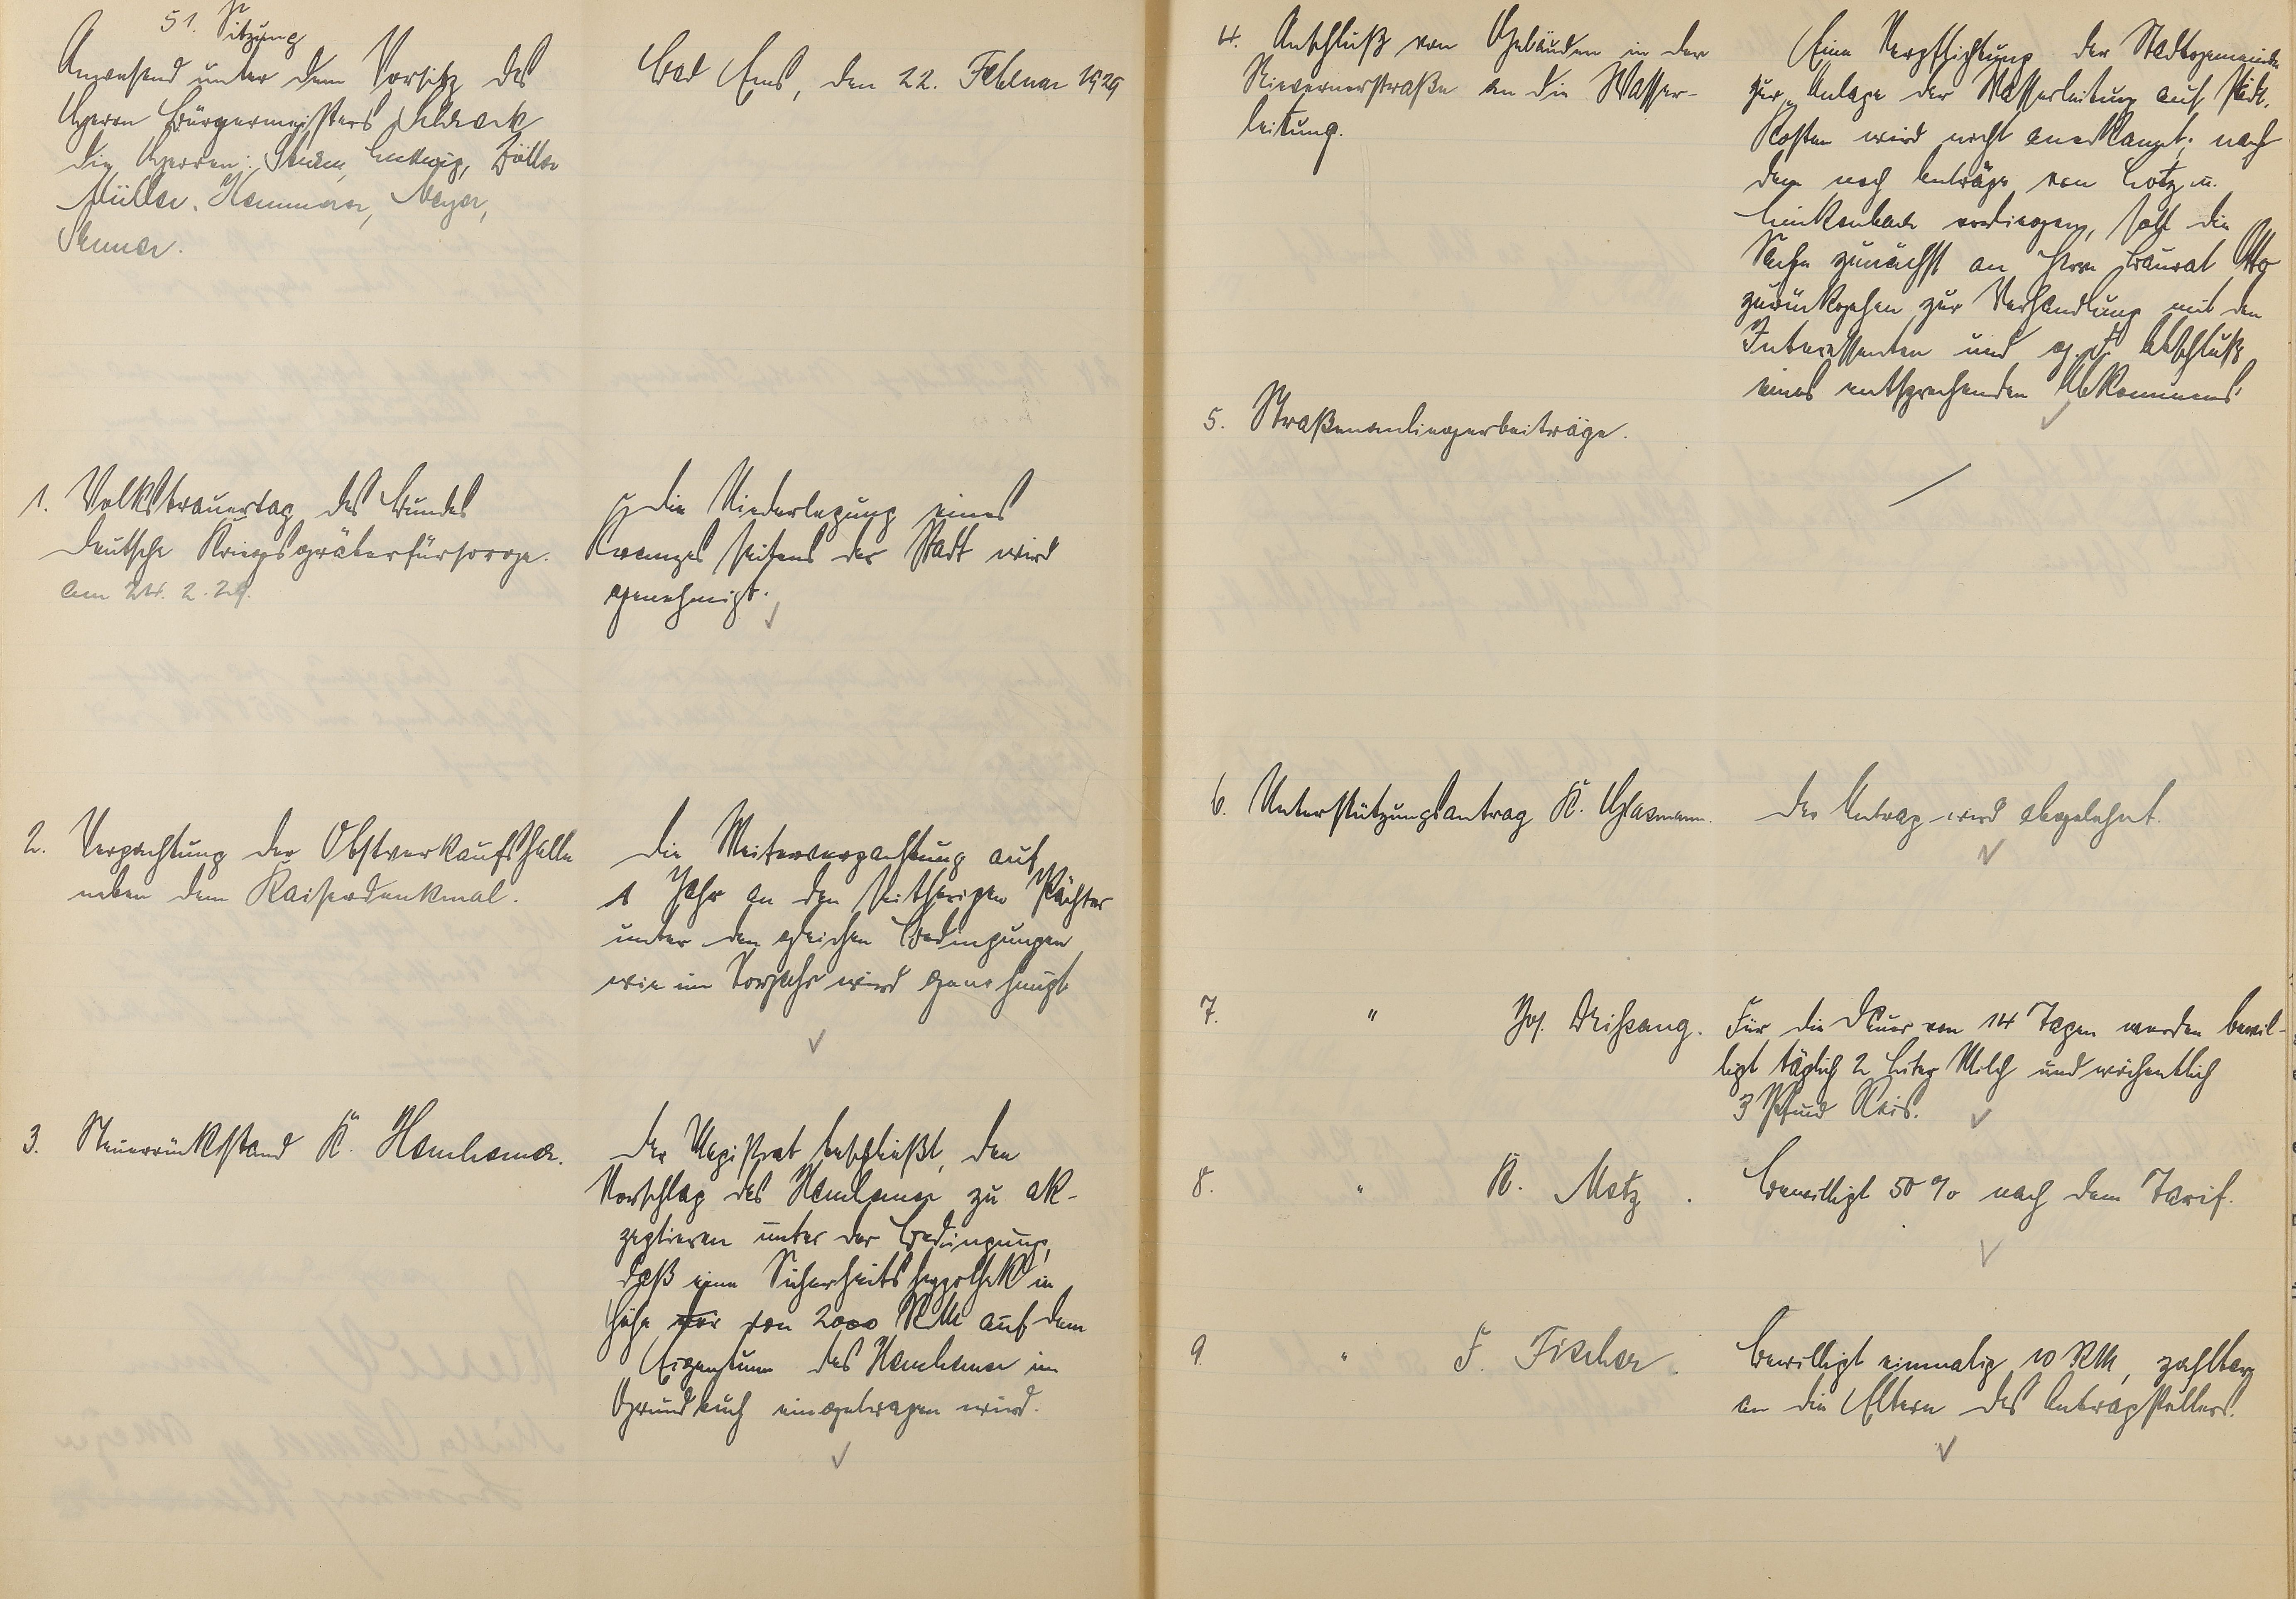 51. Sitzung
Anwesend unter dem Vorsitz des
Herrn Bürgermeisters Schrock
die Herren: Ludwig,
Müller, Hammerer, Meyer,
Bad Ems, den 22. Februar 1929
1. Volkstrauertag des Bundes
deutsche Kriegsgräberfürsorge.
am 24. 2. 29.
Die Niederlegung eines
Kranzes seitens der Stadt wird
genehmigt.
2. Verpachtung der Obstverkaufshalle
neben dem Kaiserdenkmal.
Die Weiterverpachtung auf
1 Jahr an den seitherigen Pächter
unter den gleichen Bedingungen
wie im Vorjahr wird genehmigt
3. Steuerrückstand K.
Der Magistrat beschließt, den
Vorschlag des zu ak-
zeptieren unter der Bedingung,
daß eine Sicherheitshypothek in
Höhe von 2000 RM auf dem
Eigentum des im
Grundbuch eingetragen wird.
4. Anschluß von Gebäuden in der
Nievernerstraße an die Wasser-
leitung.
Eine Verpflichtung der Stadtgemeinde
zur Anlage der Wasserleitung auf städt.
Kosten wird nicht anerkannt; nach
dem noch Anträge von Lotz u.
Linkenbach vorliegen, soll die
Sache zunächst an Herrn Baurat Otto
zurückgehen zur Verhandlung mit den
Interessenten und g. F. Abschluß
eines entsprechenden Abkommens
5. Straßenanliegerbeiträge.
6. Unterstützungsantrag K. Glasmann.
Der Antrag wird abgelehnt.
7. " Jos.
Für die Dauer von 14 Tagen werden bewil-
ligt täglich 2 Liter Milch und wöchentlich
3 Pfund Reis.
8. " K. Metz.
Bewilligt 50 % nach dem Tarif.
9. " F. Fischer.
Bewilligt einmalig 10 RM, zahlbar
an die Eltern des Antragstellers.